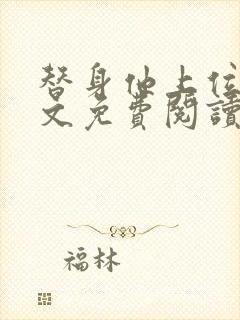 替身他上位
文免費閱讀
福林